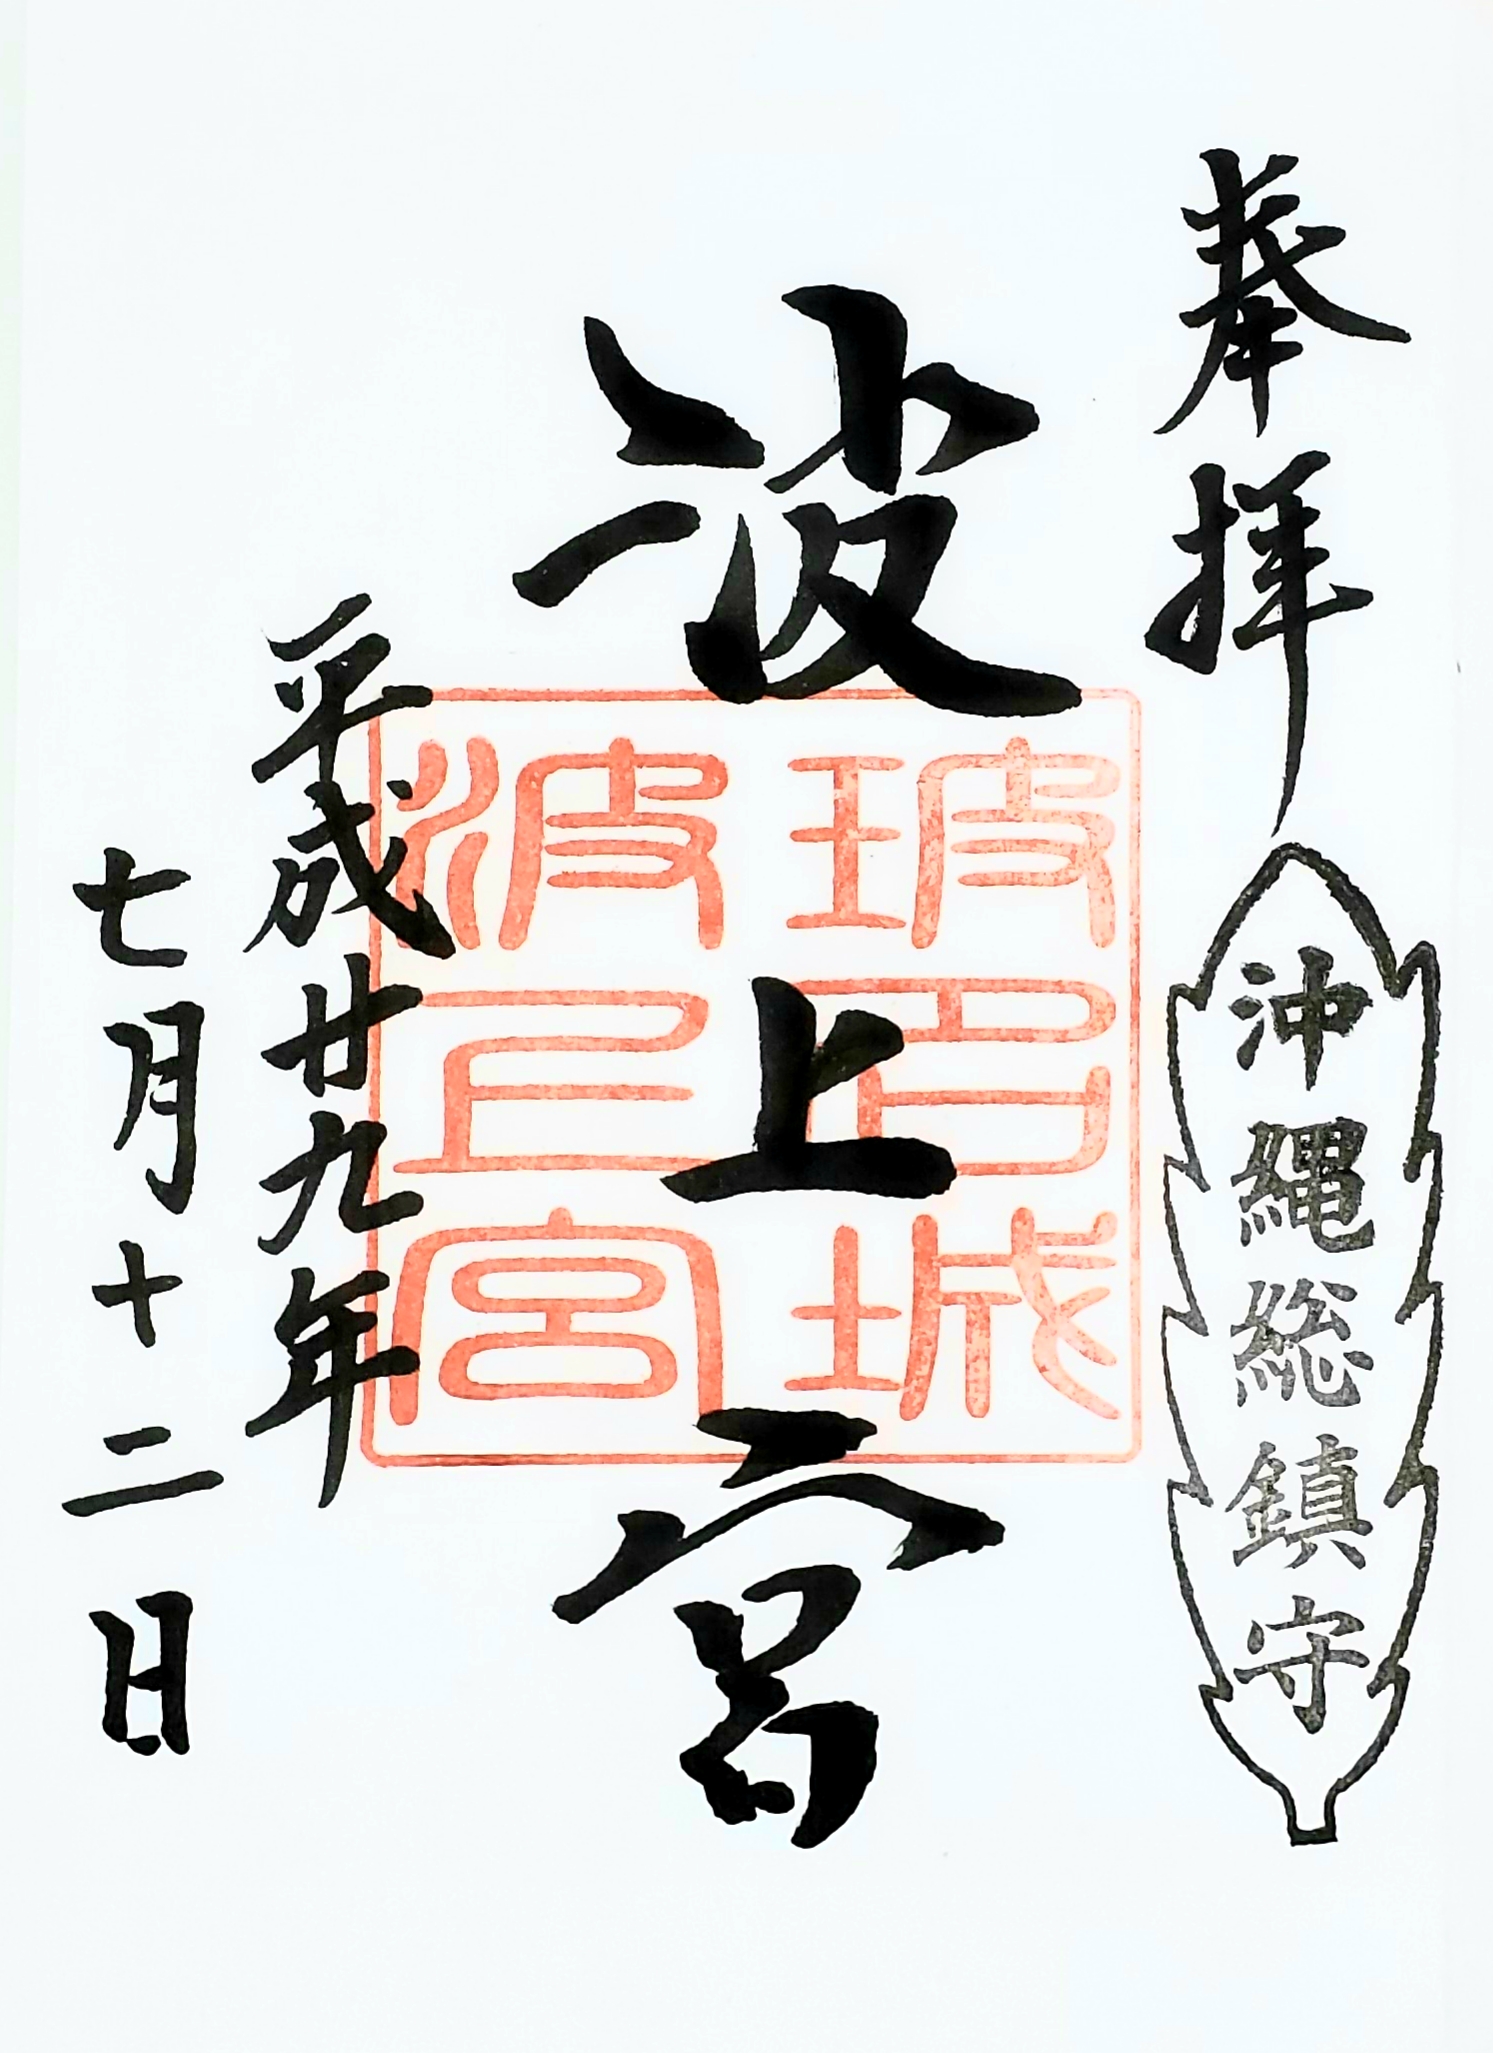 奉拝
沖縄総鎮守
波上宮
波上宮
平成廿九年
七月十二日